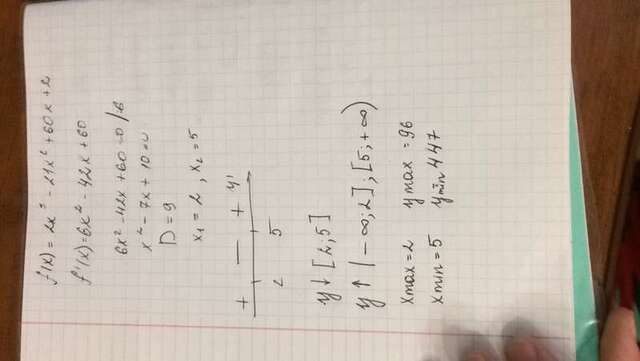 f(x) = 2x³ - 21x² + 60x + 2
f'(x) = 6x² - 42x + 60
6x² - 42x + 60 = 0 /:6
x² - 7x + 10 = 0
D = 9
x₁ = 2, x₂ = 5
+ — + y'
2 5
y↓ [2;5]
y↑ (-∞;2]; [5;+∞)
xmax = 2 ymax = 96
xmin = 5 ymin = 447